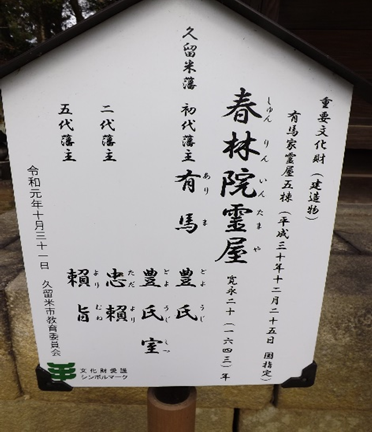 重要文化財（建造物）
有馬家霊屋五棟（平成三十年十二月二十五日 国指定）
春林院霊屋 寛永二十（一六四三）年
しゅんりんいんたまや
久留米藩 初代藩主 有馬 豊氏
ありま とようじ
豊氏室
とようじしつ
二代藩主 忠頼
ただより
五代藩主 頼旨
よりむね
令和元年十月三十一日 久留米市教育委員会
文化財愛護
シンボルマーク